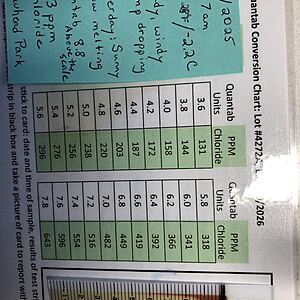 Quantab Conversion Chart: Lot
/2026
2025
7 am
/-2.2C
windy
dropping
Sunny
melting
8.8
Above the
scale
ppm
Park
Quantab Units PPM Chloride
3.6 131
3.8 141
4.0 158
4.2 172
4.4 187
4.6 203
4.8 220
5.0 238
5.2 256
5.4 276
5.6 296
Quantab Units PPM Chloride
5.8 318
6.0 341
6.2 366
6.4 392
6.6 419
6.8 449
7.0 482
7.2 516
7.4 554
7.6 596
7.8 643
stick to card: date and time of sample, results of test
strip in black box and take a picture of card to report with